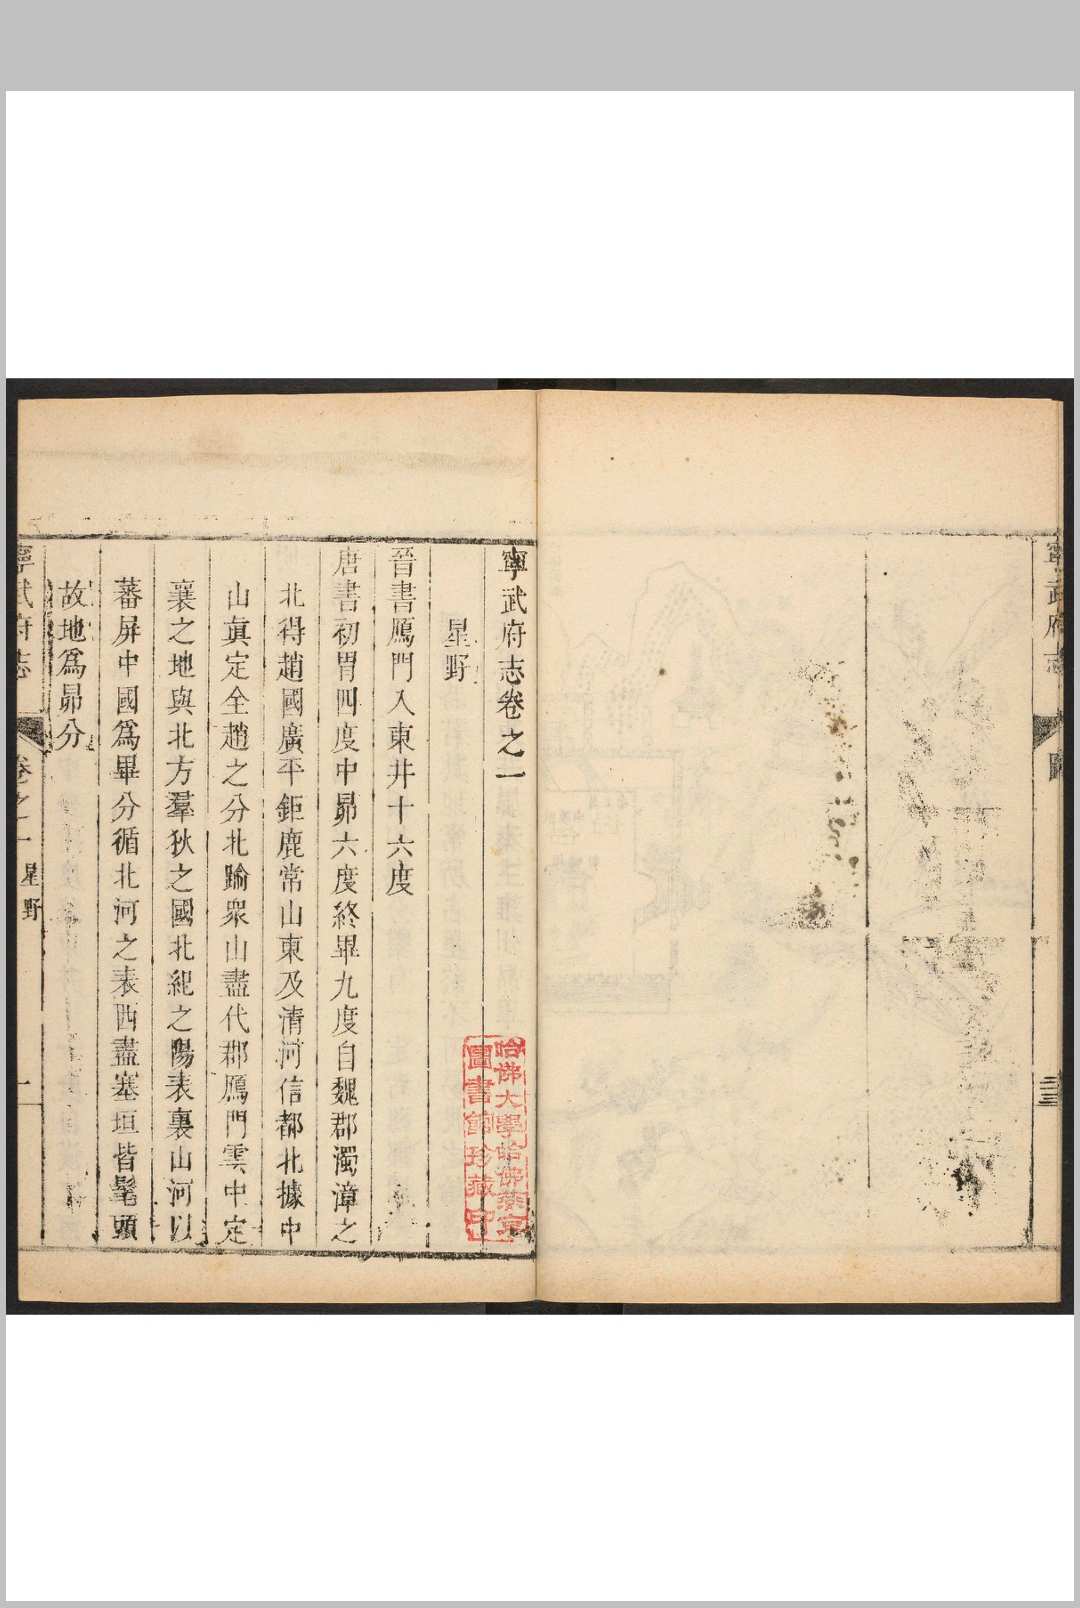 寧武府志
圖
三十三
寧武府志卷之一
星野
晉書鴈門入東井十六度
唐書初胃四度中昴六度終畢九度自魏郡濁漳之
北得趙國廣平鉅鹿常山東及清河信都北據中
山眞定全趙之分北踰衆山盡代郡鴈門雲中定
襄之地與北方羣狄之國北紀之陽表裏山河以
蕃屏中國爲畢分循北河之表西盡塞垣皆髦頭
故地爲昴分
寧武府志
卷之一
星野
一
哈佛大學哈佛燕京
圖書館珍藏印